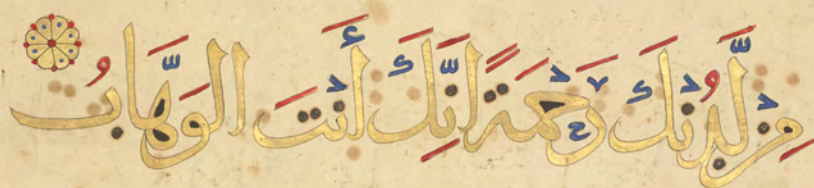 مِن لَّدُنْكَ رَحْمَةً إِنَّكَ أَنْتَ الْوَهَّابُ